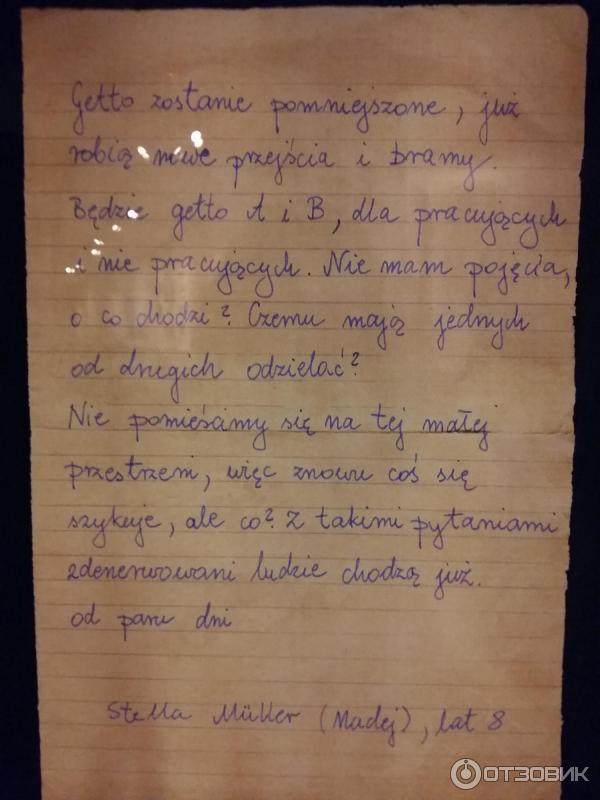 Getto zostanie pomniejszone, już
robią nowe przejścia i bramy.
Będzie getto A i B, dla pracujących
i nie pracujących. Nie mam pojęcia,
o co chodzi? Czemu mają jednych
od drugich odzielać?
Nie pomieścimy się na tej małej
przestrzeni, więc znowu coś się
szykuje, ale co? Z takimi pytaniami
zdenerwowani ludzie chodzą już.
od paru dni
Stella Müller (Madej), lat 8
ОТЗОВИК